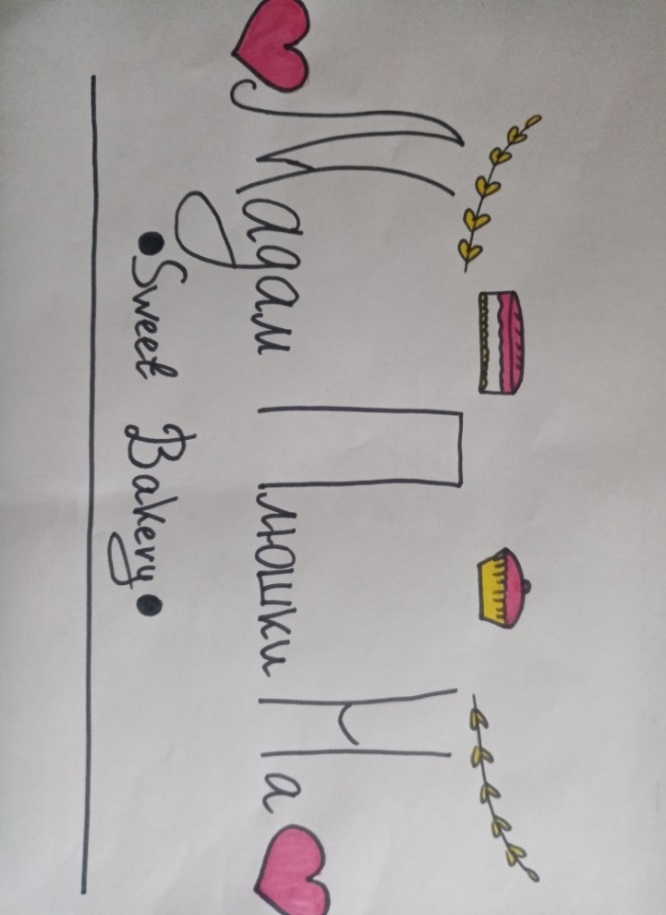 Мадам Плюшкина
• Sweet Bakery •